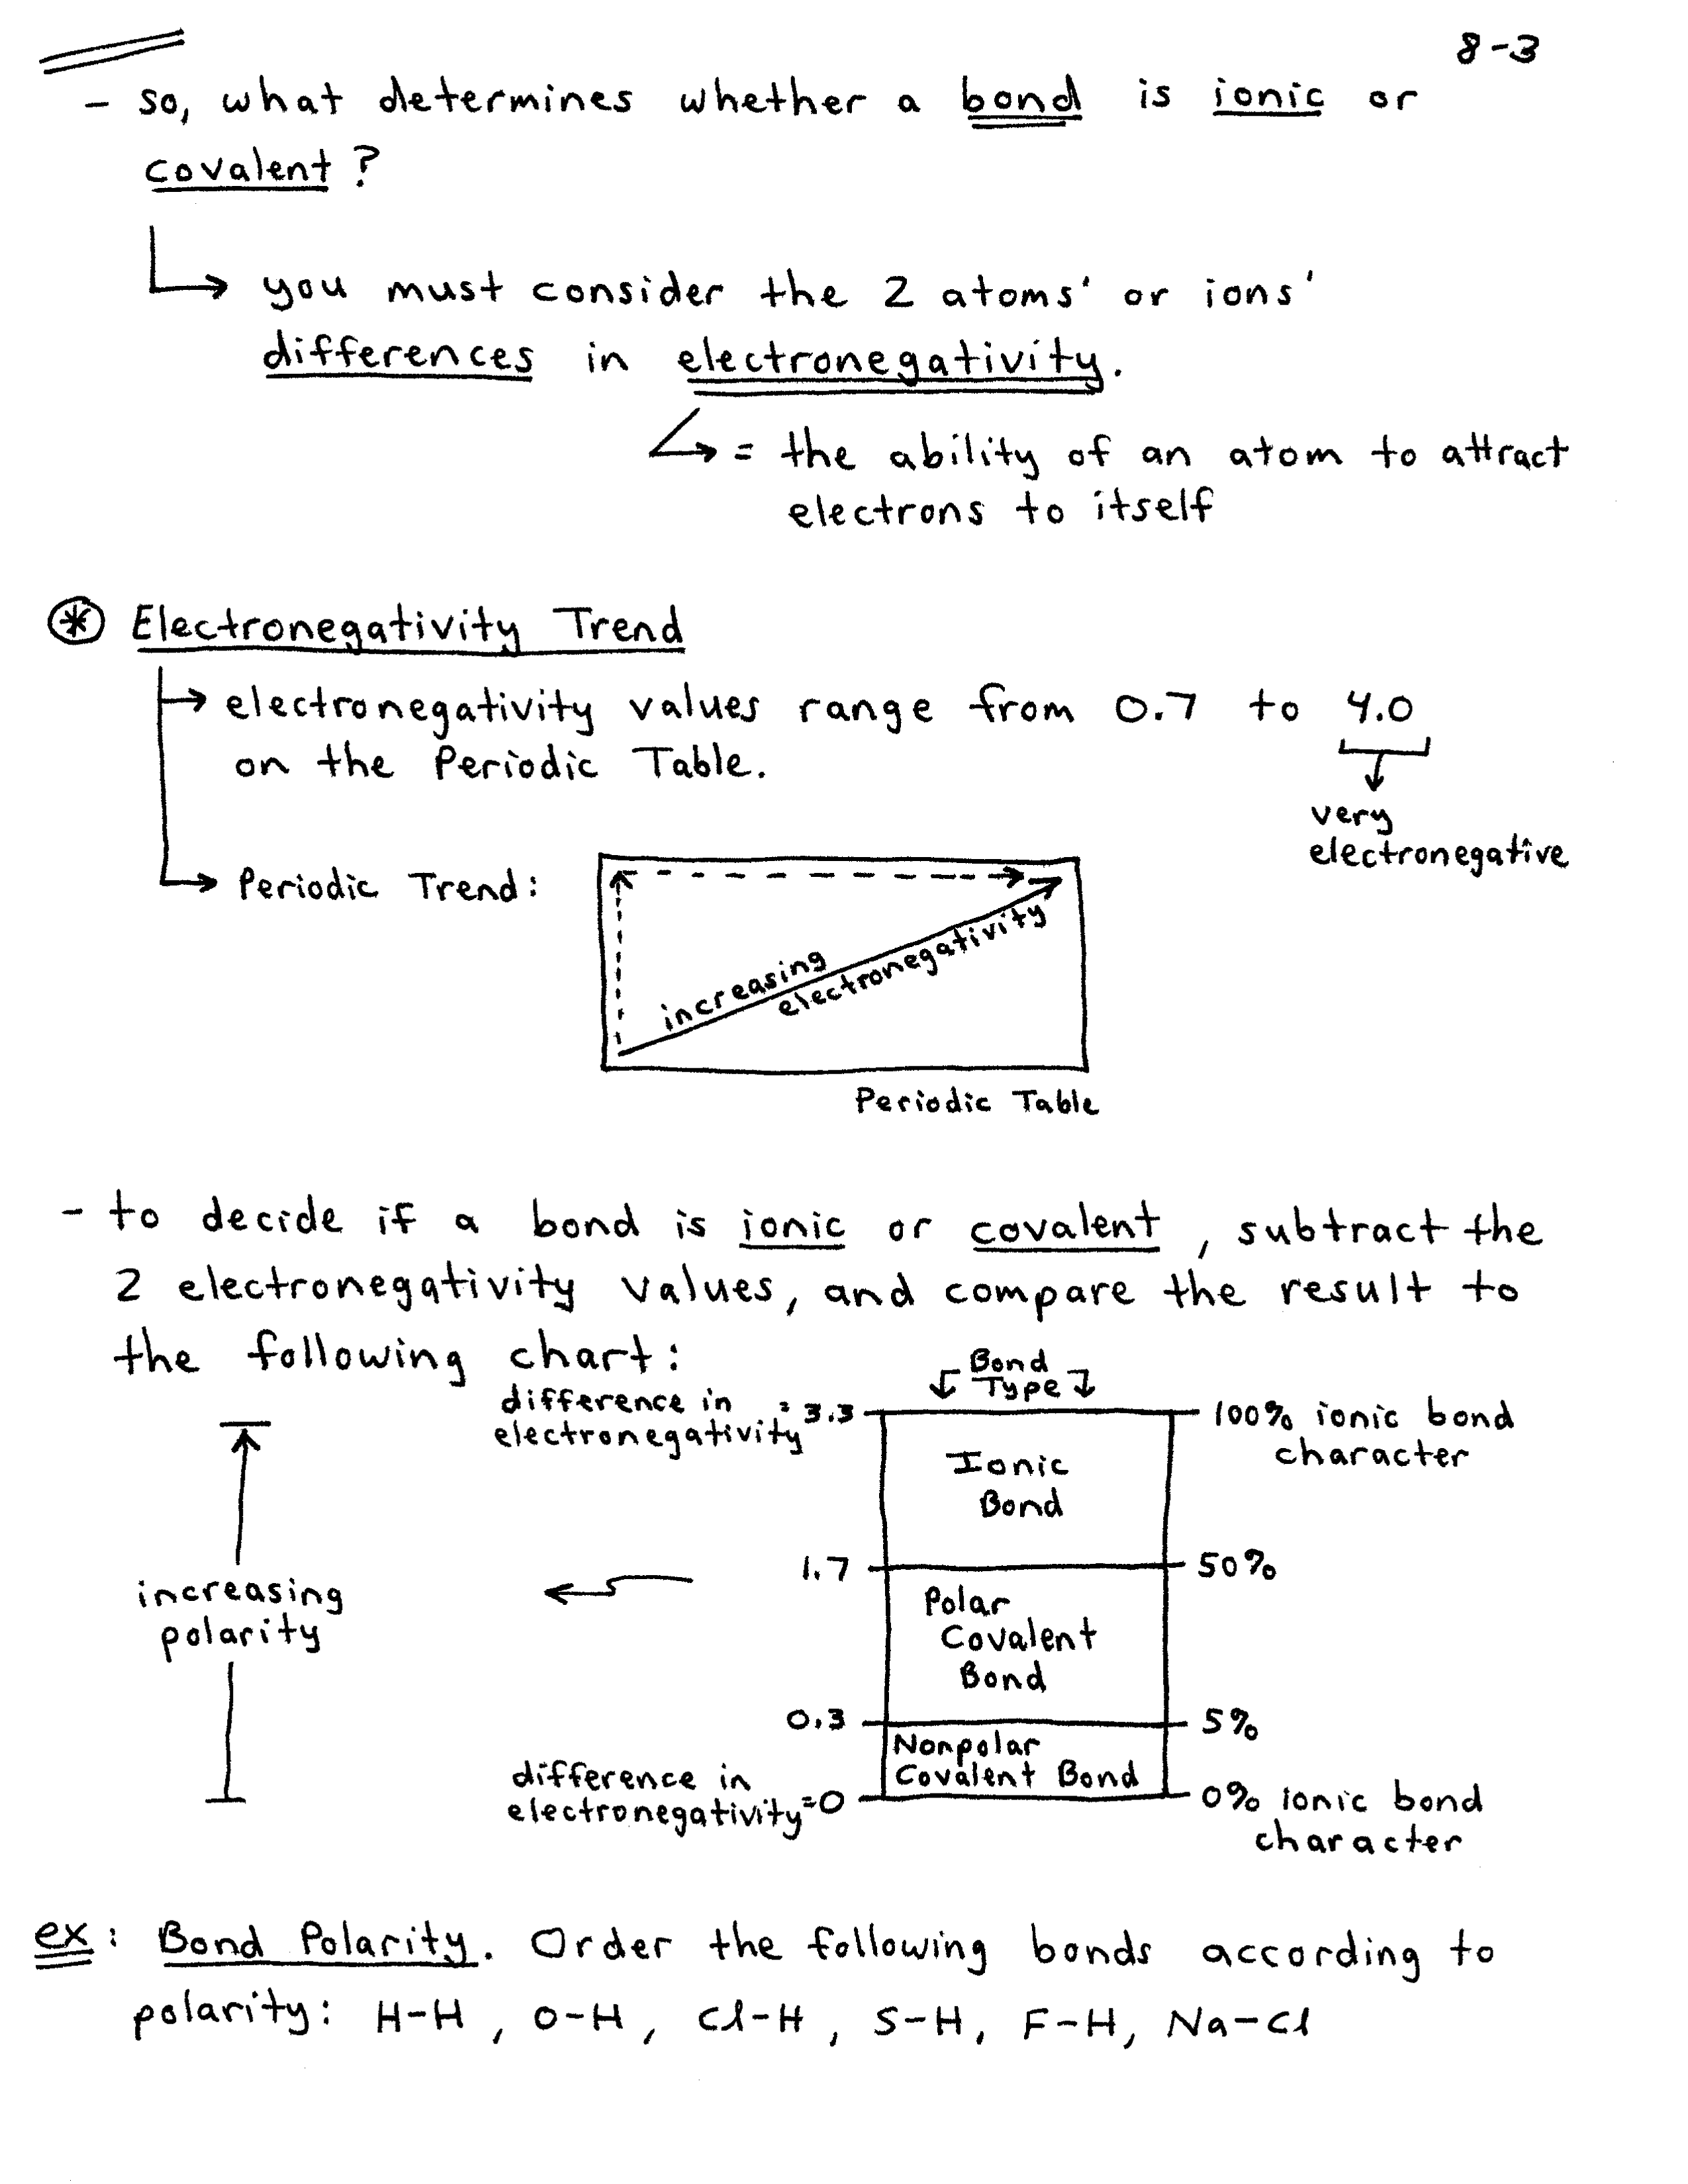 8-3
- so, what determines whether a bond is ionic or
covalent?
you must consider the 2 atoms' or ions'
differences in electronegativity.
= the ability of an atom to attract
electrons to itself
* Electronegativity Trend
electronegativity values range from 0.7 to 4.0
on the Periodic Table.
very
electronegative
Periodic Trend:
increasing
electronegativity
Periodic Table
- to decide if a bond is ionic or covalent, subtract the
2 electronegativity values, and compare the result to
the following chart:
Bond
Type
difference in
electronegativity = 3.3
100% ionic bond
character
Ionic
Bond
1.7
50%
increasing
polarity
Polar
Covalent
Bond
0.3
5%
Nonpolar
Covalent Bond
difference in
electronegativity = 0
0% ionic bond
character
ex: Bond Polarity. Order the following bonds according to
polarity: H-H, O-H, Cl-H, S-H, F-H, Na-Cl